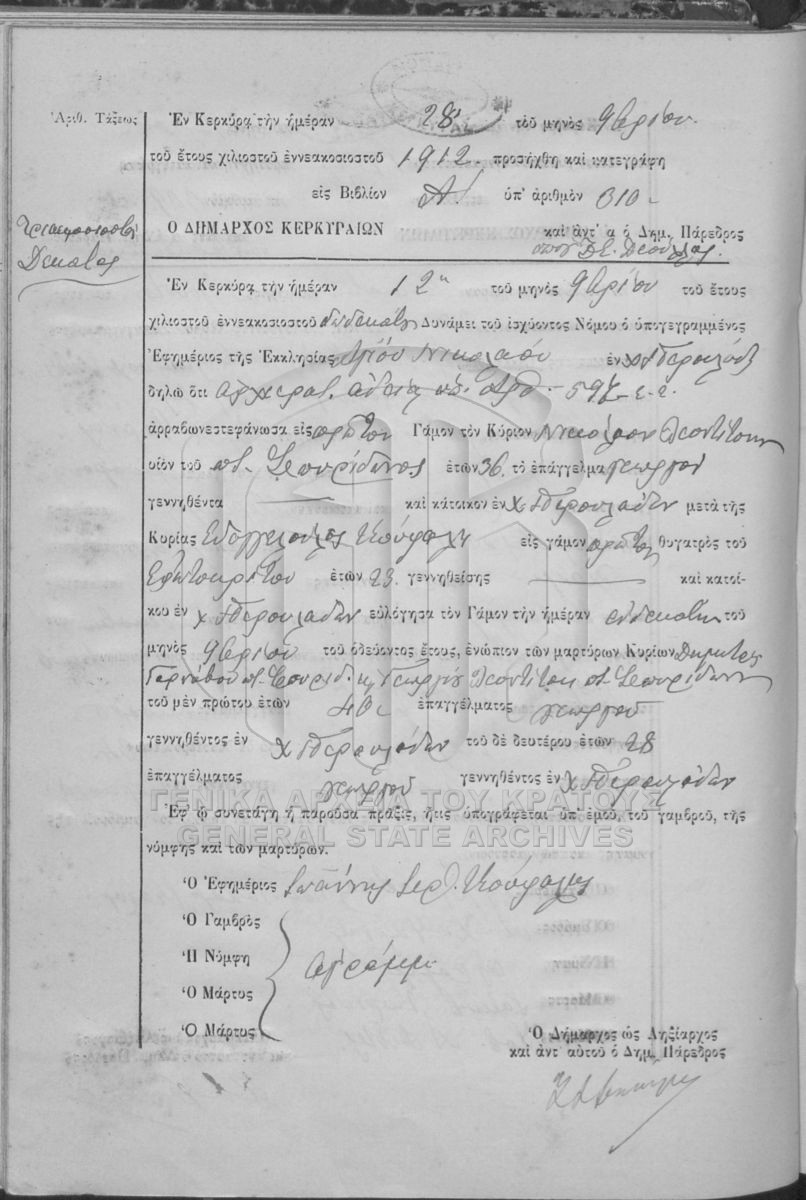 Ἀριθ. Τάξεως
Ἐν Κερκύρᾳ τὴν ἡμέραν 28 τοῦ μηνὸς 9βρίου
τοῦ ἔτους χιλιοστοῦ ἐννεακοσιοστοῦ 1912. προσήχθη καὶ κατεγράφη
εἰς Βιβλίον Α! ὑπ' ἀριθμὸν 310
Τριακοσιοστὸς
Δέκατος
Ο ΔΗΜΑΡΧΟΣ ΚΕΡΚΥΡΑΙΩΝ καὶ ἀντ' α ὁ Δημ. Πάρεδρος
Ἐν Κερκύρᾳ τὴν ἡμέραν 12 τοῦ μηνὸς 9βρίου τοῦ ἔτους
χιλιοστοῦ ἐννεακοσιοστοῦ δωδεκάτου Δυνάμει τοῦ ἰσχύοντος Νόμου ὁ ὑπογεγραμμένος
Ἐφημέριος τῆς Ἐκκλησίας Ἁγίου Νικολάου ἐν χ. Περουλάδες
δηλῶ ὅτι ἀρχιερατ. ἀδείᾳ ὑπ. ἀριθ. 597
ἀρραβωνεστεφάνωσα εἰς πρῶτον Γάμον τὸν Κύριον Νικόλαον Λεοντίτσην
υἱὸν τοῦ ποτ. Σπυρίδωνος ἐτῶν 36. τὸ ἐπάγγελμα γεωργοῦ
γεννηθέντα — καὶ κάτοικον ἐν χ. Περουλάδων μετὰ τῆς
Κυρίας Εὐαγγελούλας Κούφαλη εἰς γάμον πρῶτον θυγατρὸς τοῦ
Ἐρωτοκρίτου ἐτῶν 23. γεννηθείσης — καὶ κατοί-
κου ἐν χ. Περουλάδων εὐλόγησα τὸν Γάμον τὴν ἡμέραν ἑνδεκάτην τοῦ
μηνὸς 9βρίου τοῦ ὁδεύοντος ἔτους, ἐνώπιον τῶν μαρτύρων Κυρίων Δημητρίου
ποτ. Σπυρίδ. κ Γεωργίου Λεοντίτση ποτ. Σπυρίδωνος
τοῦ μὲν πρώτου ἐτῶν 40 ἐπαγγέλματος γεωργοῦ
γεννηθέντος ἐν χ. Περουλάδων τοῦ δὲ δευτέρου ἐτῶν 28
ἐπαγγέλματος γεωργοῦ γεννηθέντος ἐν χ. Περουλάδων
ΓΕΝΙΚΑ ΑΡΧΕΙΑ ΤΟΥ ΚΡΑΤΟΥΣ
Ἐφ' ᾧ συνετάγη ἡ παροῦσα πρᾶξις, ἥτις ὑπογράφεται ὑπ' ἐμοῦ, τοῦ γαμβροῦ, τῆς
GENERAL STATE ARCHIVES
νύμφης καὶ τῶν μαρτύρων.
Ὁ Ἐφημέριος Ἰωάννης Ἱερ. Κούφαλης
Ὁ Γαμβρὸς
Ἡ Νύμφη
ἀγράμμ.
Ὁ Μάρτυς
Ὁ Μάρτυς
Ὁ Δήμαρχος ὡς Ληξίαρχος
καὶ ἀντ' αὐτοῦ ὁ Δημ. Πάρεδρος